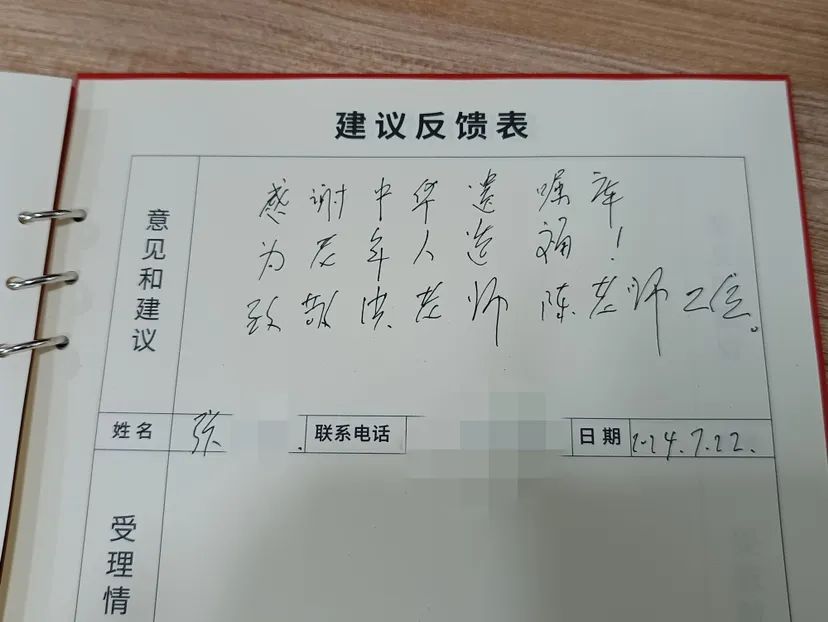 建议反馈表
意见和建议
感谢中华遗嘱库
为老年人造福！
致敬洪老师 陈老师二位。
姓名
张
联系电话
日期
2024.7.22.
受理情